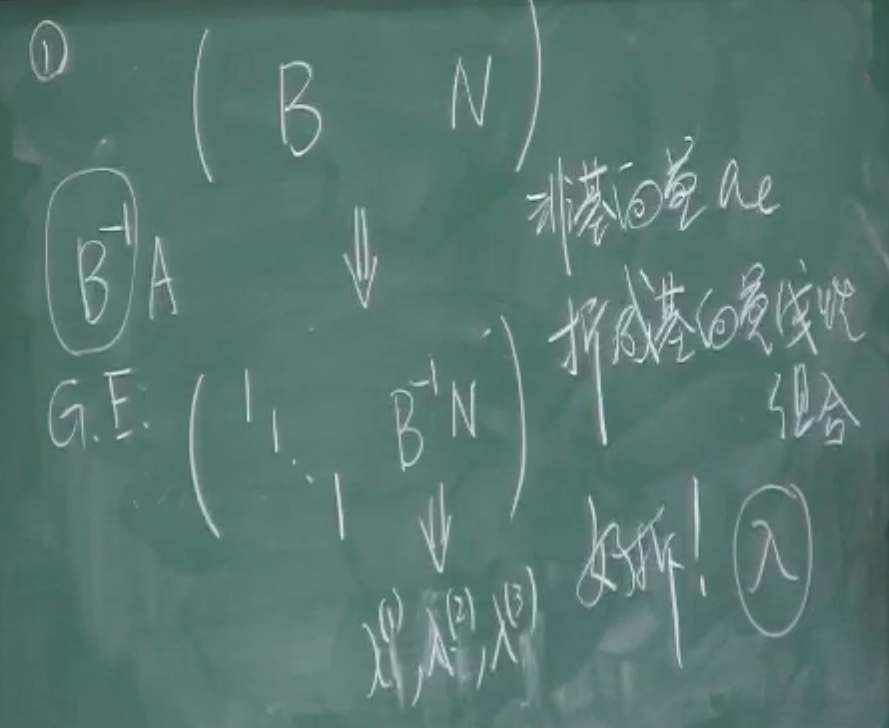 ①
( B N )
B⁻¹ A
⇓
G.E. ( 1 1 ⋱ 1 B⁻¹N )
⇓
λ⁽¹⁾, λ⁽²⁾, λ⁽³⁾
非基向量 aₑ
拆成基向量线性
组合
好拆! λ